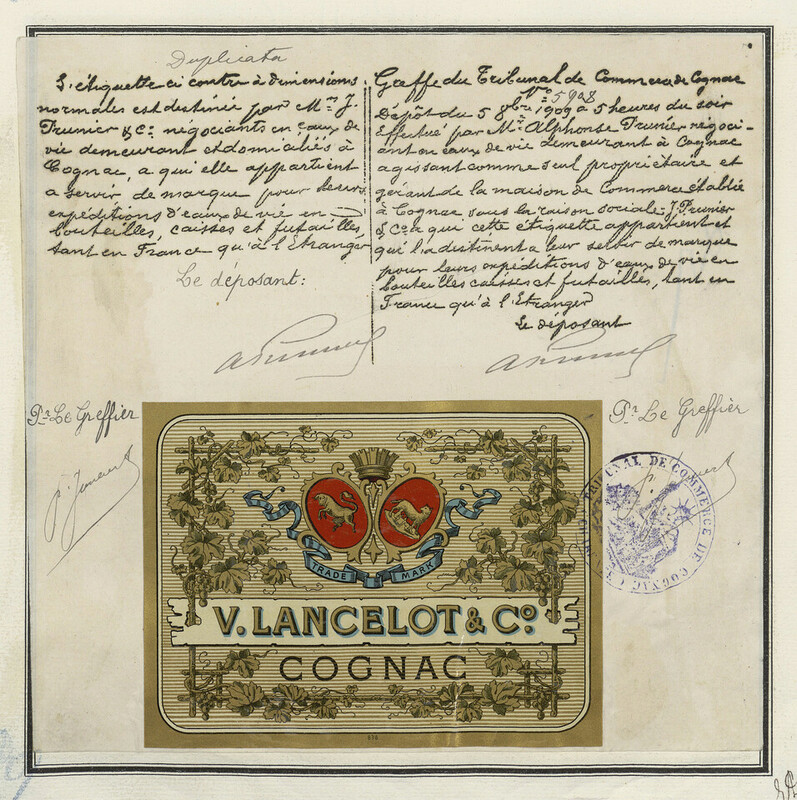 Duplicata
L'étiquette ci contre à dimensions
normales est destinée par Mrs J.
Prunier & Co. négociants en eaux de
vie demeurant et domiciliés à
Cognac, a qui elle appartient
a servir de marque pour leurs
expéditions d'eaux de vie en
bouteilles, caisses et futailles,
tant en France qu'à l'Etranger
Le déposant:
Greffe du Tribunal de Commerce de Cognac
No 5908
Dépôt du 5 9bre 1909 à 5 heures du soir
Effectué par Mr. Alphonse Prunier négoci-
ant en eaux de vie demeurant à Cognac
agissant comme seul propriétaire et
gérant de la maison de Commerce établie
à Cognac sous la raison sociale: J. Prunier
& Co a qui cette étiquette appartient et
qui la destinent a leur servir de marque
pour leurs expéditions d'eaux de vie en
bouteilles caisses et futailles, tant en
France qu'à l'Etranger
Le déposant
Pr Le Greffier
Pr Le Greffier
TRIBUNAL DE COMMERCE DE COGNAC
TRADE MARK
V. LANCELOT & Co.
COGNAC